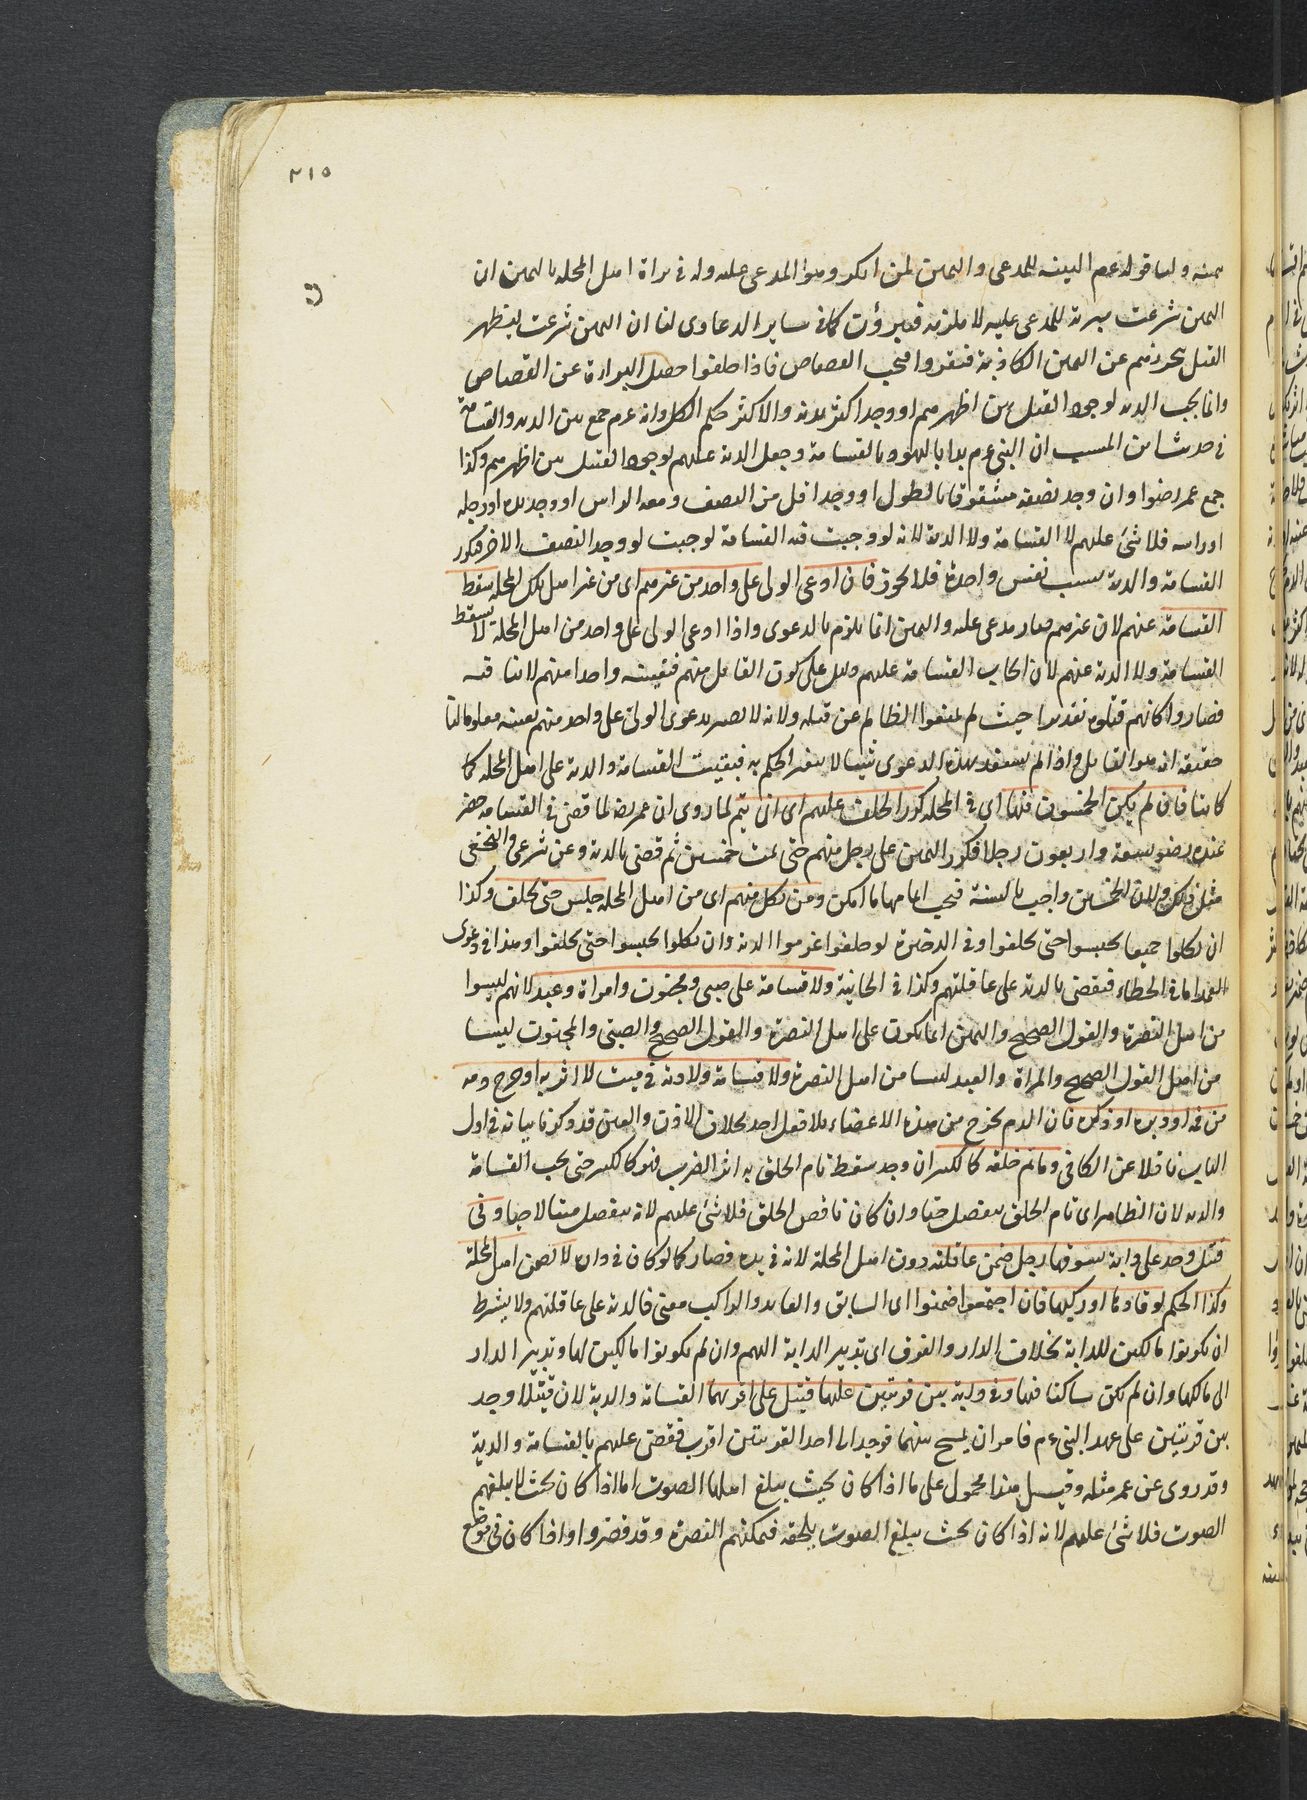 ٣١٥
يمينه ولنا قوله عم البينه للمدعى واليمين لمن انكر وهو المدعى عليه وله فى براة اهل المحله باليمين ان
اليمين شرعت مبرئة للمدعى عليه لا ملزمه فيبرؤن كما فى ساير الدعاوى لنا ان اليمين شرعت ليظهر
القتل بتحرزهم عن اليمين الكاذبة فيقروا فيجب القصاص فاذا حلفوا حصل البراءة عن القصاص
وانما يجب الديه لوجود القتيل بين اظهرهم او وجد اكثر بدنه وللاكثر حكم الكل وانه عم جمع بين الديه والقسامة
فى حديث ابن المسيب ان النبى عم بدا باليهود بالقسامة وجعل الدية عليهم لوجود القتيل بين اظهرهم وكذا
جمع عمر رضوا وان وجد نصفه مشقوقا بالطول او وجد اقل من النصف ومعه الراس او وجد يده او رجله
او راسه فلا شئ عليهم لا القسامة ولا الدية لانه لو وجبت فيه القسامة لوجبت لو وجد النصف الاخر فتكرر
القسامة والدية بسبب نفس واحدة فلا يجوز فان ادعى الولى على واحد من غيرهم اى من غير اهل تلك المحله سقط
القسامة عنهم لان غيرهم صار مدعى عليه واليمين انما يلزم بالدعوى واذا ادعى الولى على واحد من اهل المحلة لا يسقط
القسامة ولا الدية عنهم لان ايجاب القسامة عليهم دليل على كون القاتل منهم فتعيينه واحدا منهم لا ينافيه
فصاروا كانهم قتلوه تقديرا حيث لم يمنعوا الظالم عن قتله ولانه لا يصير بدعوى الولى على واحد منهم بعينه معلوما لنا
حقيقة انه هو القاتل واذا لم يستفد بهذه الدعوى شيئا لا يتغير الحكم به فبقيت القسامة والدية على اهل المحله كما
كانتا فان لم يكن الخمسون فيها اى فى المحله كرر الحلف عليهم اى ان يتم لما روى ان عمر رضه لما قضى فى القسامه حضر
عنده رضو تسعة واربعون رجلا فكرر اليمين على رجل منهم حتى تمت خمسين ثم قضى بالدية وعن شريح والنخعى
مثل ذلك ولان الخمسين واجب بالسنة فيجب اتمامها ما امكن ومن نكل منهم اى من اهل المحله حبس حتى يحلف وكذا
ان نكلوا جميعا يحبسوا حتى يحلفوا وفى الذخيرة لو حلفوا غرموا الدية وان نكلوا يحبسوا حتى يحلفوا وهذا فى دعوى
العمد اما فى الخطاء فيقضى بالدية على عاقلتهم وكذا فى الخانية ولا قسامة على صبى ومجنون وامراة وعبد لانهم ليسوا
من اهل النصرة والقول الصحيح واليمين انما يكون على اهل النصرة والقول الصحيح والصبى والمجنون ليسا
من اهل القول الصحيح والمراة والعبد ليسا من اهل النصرة ولا قسامة ولا دية فى ميت لا اثر به او خرج دمه
من فمه او دبره او ذكره فان الدم يخرج من هذه الاعضاء بلا فعل احد بخلاف الاذن والعين قد ذكرنا بيانه فى اول
الباب ناقلا عن الكافى وما تم خلقه كالكبير ان وجد سقط تام الخلق به اثر الضرب فهو كالكبير حتى يجب القسامة
والدية لان الظاهر اى تام الخلق ينفصل حيا وان كان ناقص الخلق فلا شئ عليهم لانه ينفصل ميتا لا حيا وفى
قتيل وجد على دابة يسوقها رجل ضمن عاقلته دون اهل المحلة لانه فى يده فصار كما لو كان فى داره لا يضمن اهل المحلة
وكذا الحكم لو قادها او ركبها فان اجتمعوا ضمنوا اى السابق والقايد والراكب معنى فالدية على عاقلتهم ولا يشترط
ان يكونوا مالكين للدابة بخلاف الدار والفرق اى تدبير الدابة اليهم وان لم يكونوا مالكين لها وتدبير الدار
الى مالكها وان لم يكن ساكنا فيها وفى دابة بين قريتين عليها قتيل على اقربهما القسامة والدية لان قتيلا وجد
بين قريتين على عهد النبى عم فامر ان يمسح بينهما فوجد الى احد القريتين اقرب فقضى عليهم بالقسامة والدية
وقد روى عن عمر مثله وقيل هذا محمول على ما اذا كان بحيث يبلغ اهلها الصوت اما اذا كان بحيث لا يبلغهم
الصوت فلا شئ عليهم لانه اذا كان بحيث يبلغ الصوت يلحقه فيمكنهم النصرة وقد قصروا واذا كان فى موضع